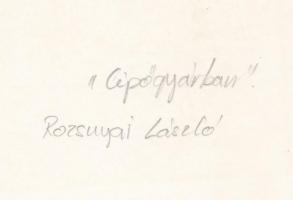 "Cipőgyárban".
Rozsnyai László